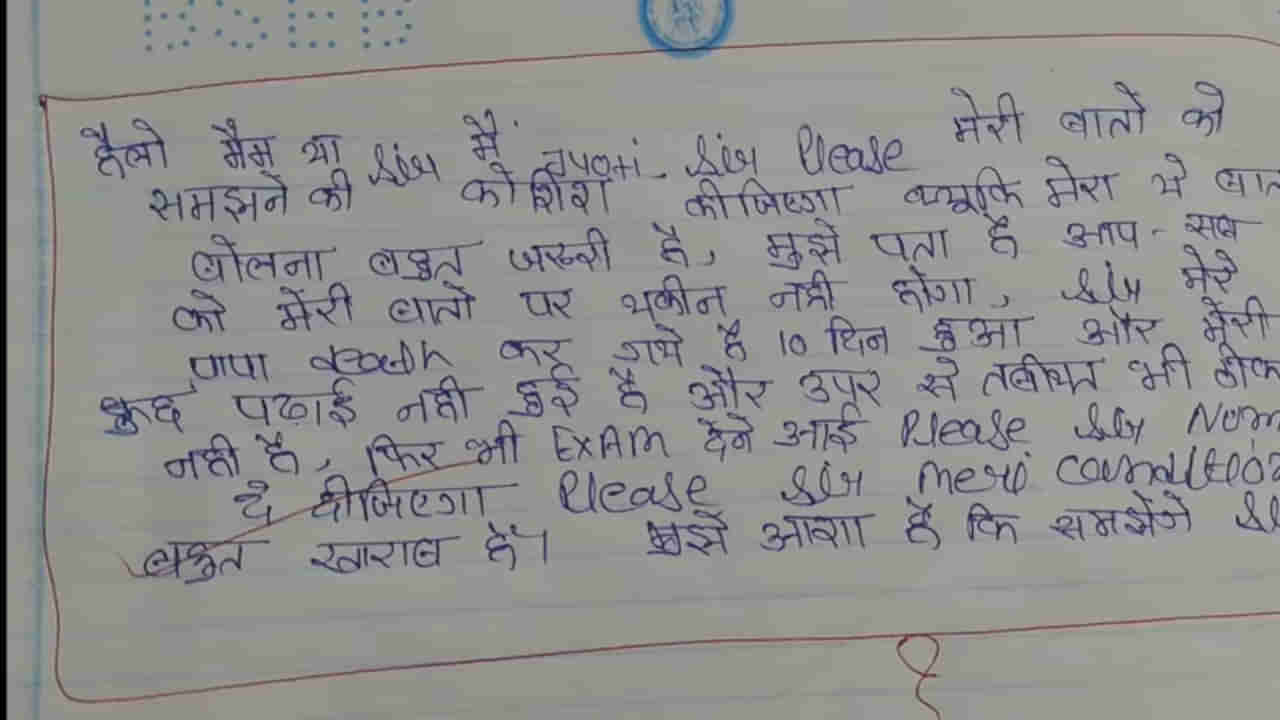 BSEB
हैलो मैम या Sir मैं Sir Please मेरी बातों को
समझने की कोशिश कीजिएगा क्यूकि मेरा ये बात
बोलना बहुत जरूरी है, मुझे पता है आप-सब
को मेरी बातो पर यकीन नही होगा, Sir मेरे
पापा death कर गये है 10 दिन हुआ और मेरी
कुछ पढाई नही हुई है और उपर से तबीयत भी ठीक
नही है, फिर भी EXAM देने आई Please Sir
दे दीजिएगा Please Sir meri
बहुत खराब है। मुझे आशा है कि समझेंगे